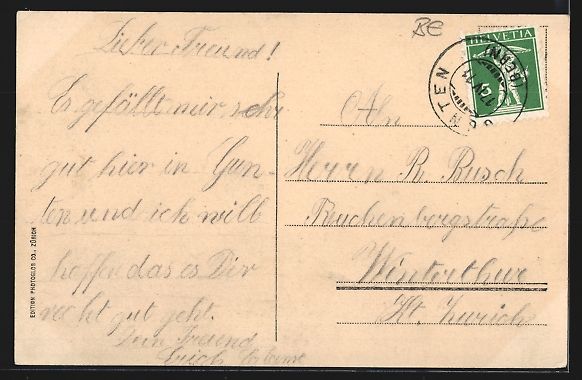 BE
HELVETIA
GUNTEN
(BERN)
Lieber Freund!
Es gefällt mir sehr
gut hier in Gun-
ten und ich will
hoffen das es Dir
recht gut geht.
Dein Freund
Erich
An
Herrn R. Busch
Buchenbergstraße
Winterthur
Kt. Zürich
EDITION PHOTOGLOB CO., ZÜRICH